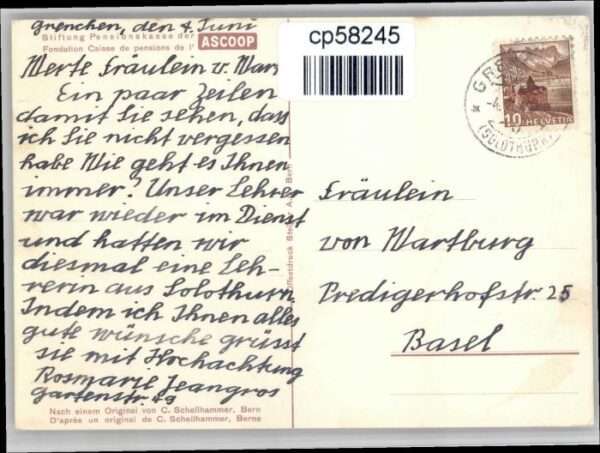 Grenchen, den 4. Juni
Stiftung Pensionskasse der
Fondation Caisse de pensions de l'
ASCOOP
cp58245
Werte Fräulein v. War
Ein paar Zeilen
damit Sie sehen, dass
ich Sie nicht vergessen
habe Wie geht es Ihnen
immer? Unser Lehrer
war wieder im Dienst
und hatten wir
diesmal eine Leh-
rerin aus Solothurn.
Indem ich Ihnen alles
gute wünsche grüsst
sie mit Hochachtung
Rosmarie Jeangros
Gartenstr. 29
Nach einem Original von C. Schellhammer, Bern
D'après un original de C. Schellhammer, Berne
Offsetdruck
10 HELVETIA
GRE
(SOLOTHURN)
Fräulein
von Wartburg
Predigerhofstr. 25
Basel